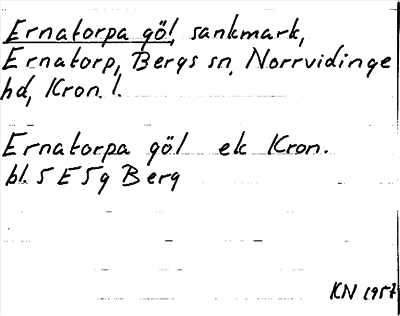 Ernatorpa göl, sankmark,
Ernatorp, Bergs sn, Norrvidinge
hd, Kron. l.
Ernatorpa göl ek Kron.
bl. 5 E 5g Berg
KN 1957